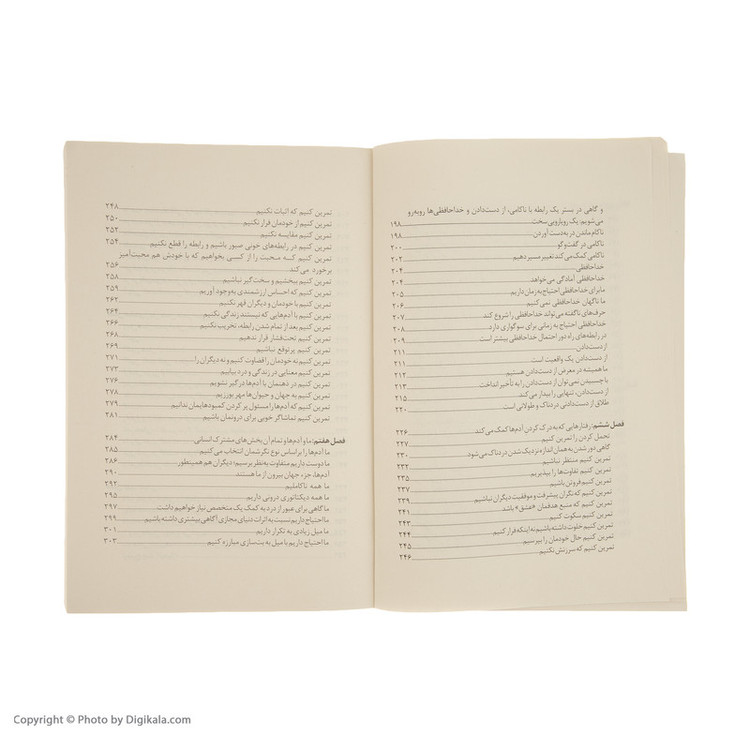 و گاهی در بستر یک رابطه با ناکامی، از دست‌دادن و خداحافظی‌ها روبه‌رو
می‌شویم: یک رویارویی سخت ۱۹۸
ناکام‌ماندن در به‌دست آوردن ۱۹۸
ناکامی در گفت‌وگو ۲۰۰
ناکامی کمک می‌کند تغییر مسیر دهیم ۲۰۲
خداحافظی ۲۰۴
خداحافظی آمادگی می‌خواهد ۲۰۴
ما برای خداحافظی احتیاج به زمان داریم ۲۰۵
ما ناگهان خداحافظی نمی‌کنیم ۲۰۶
حرف‌های ناگفته می‌تواند خداحافظی را شروع کند ۲۰۷
خداحافظی احتیاج به زمانی برای سوگواری دارد ۲۰۸
در رابطه‌های راه دور احتمال خداحافظی بیشتر است ۲۰۹
از دست‌دادن ۲۱۱
از دست‌دادن یک واقعیت است ۲۱۱
ما همیشه در معرض از دست‌دادن هستیم ۲۱۲
با چسبیدن نمی‌توان از دست‌دادن را به تأخیر انداخت ۲۱۳
از دست‌دادن، تنهایی را بیدار می‌کند ۲۱۵
طلاق از دست‌دادنی دردناک و طولانی است ۲۲۰
فصل ششم: رفتارهایی که به درک کردن آدم‌ها کمک می‌کند ۲۲۶
تحمل کردن را تمرین کنیم ۲۲۷
گاهی دور شدن به همان اندازه نزدیک شدن دردناک می‌شود ۲۳۰
تمرین کنیم منتظر نباشیم ۲۳۲
تمرین کنیم تفاوت‌ها را بپذیریم ۲۳۵
تمرین کنیم فروتن باشیم ۲۳۷
تمرین کنیم که نگران پیشرفت و موفقیت دیگران نباشیم ۲۳۹
تمرین کنیم که منبع هدفمان «عشق» باشد ۲۴۱
تمرین کنیم سکوت کنیم ۲۴۳
تمرین کنیم خلوت داشته باشیم نه اینکه فرار کنیم ۲۴۴
تمرین کنیم حال خودمان را بپرسیم ۲۴۵
تمرین کنیم که سرزنش نکنیم ۲۴۶
تمرین کنیم که اثبات نکنیم ۲۴۸
تمرین کنیم از خودمان فرار نکنیم ۲۵۰
تمرین کنیم مقایسه نکنیم ۲۵۲
تمرین کنیم در رابطه‌های خونی صبور باشیم و رابطه را قطع نکنیم ۲۵۴
تمرین کنیم که محبت را از کسی بخواهیم که با خودش هم محبت‌آمیز
برخورد می‌کند ۲۵۶
تمرین کنیم ببخشیم و سخت‌گیر نباشیم ۲۵۸
تمرین کنیم که احساس ارزشمندی به‌وجود آوریم ۲۵۹
تمرین کنیم با خودمان و دیگران قهر نکنیم ۲۶۲
تمرین کنیم با آدم‌هایی که نیستند زندگی نکنیم ۲۶۴
تمرین کنیم بعد از تمام شدن رابطه، تخریب نکنیم ۲۶۶
تمرین کنیم تحت‌فشار قرار ندهیم ۲۶۸
تمرین کنیم پرتوقع نباشیم ۲۶۹
تمرین کنیم نه خودمان را قضاوت کنیم و نه دیگران را ۲۷۱
تمرین کنیم معنایی در زندگی و درد بیابیم ۲۷۳
تمرین کنیم در ذهنمان با آدم‌ها درگیر نشویم ۲۷۶
تمرین کنیم به جهان و حیوان‌ها مهر بورزیم ۲۷۸
تمرین کنیم که آدم‌ها را مسئول پر کردن کمبودهایمان ندانیم ۲۷۹
تمرین کنیم تماشاگر خوبی برای درونمان باشیم ۲۸۱
فصل هفتم: ما و آدم‌ها و تمام آن بخش‌های مشترک انسانی ۲۸۴
ما آدم‌ها را براساس نوع نگرشمان انتخاب می‌کنیم ۲۸۵
ما دوست داریم متفاوت به‌نظر برسیم؛ دیگران هم همینطور ۲۸۶
آدم‌ها، جزء جهان بیرون از ما هستند ۲۹۰
ما همه ناکاملیم ۲۹۲
ما همه دیکتاتوری درونی داریم ۲۹۵
ما گاهی برای عبور از درد به کمک یک متخصص نیاز خواهیم داشت ۲۹۷
ما احتیاج داریم نسبت به اثرات دنیای مجازی آگاهی بیشتری داشته باشیم ۲۹۹
ما میل زیادی به تکرار داریم ۳۰۱
ما احتیاج داریم با میل به بت‌سازی مبارزه کنیم ۳۰۳
Copyright © Photo by Digikala.com